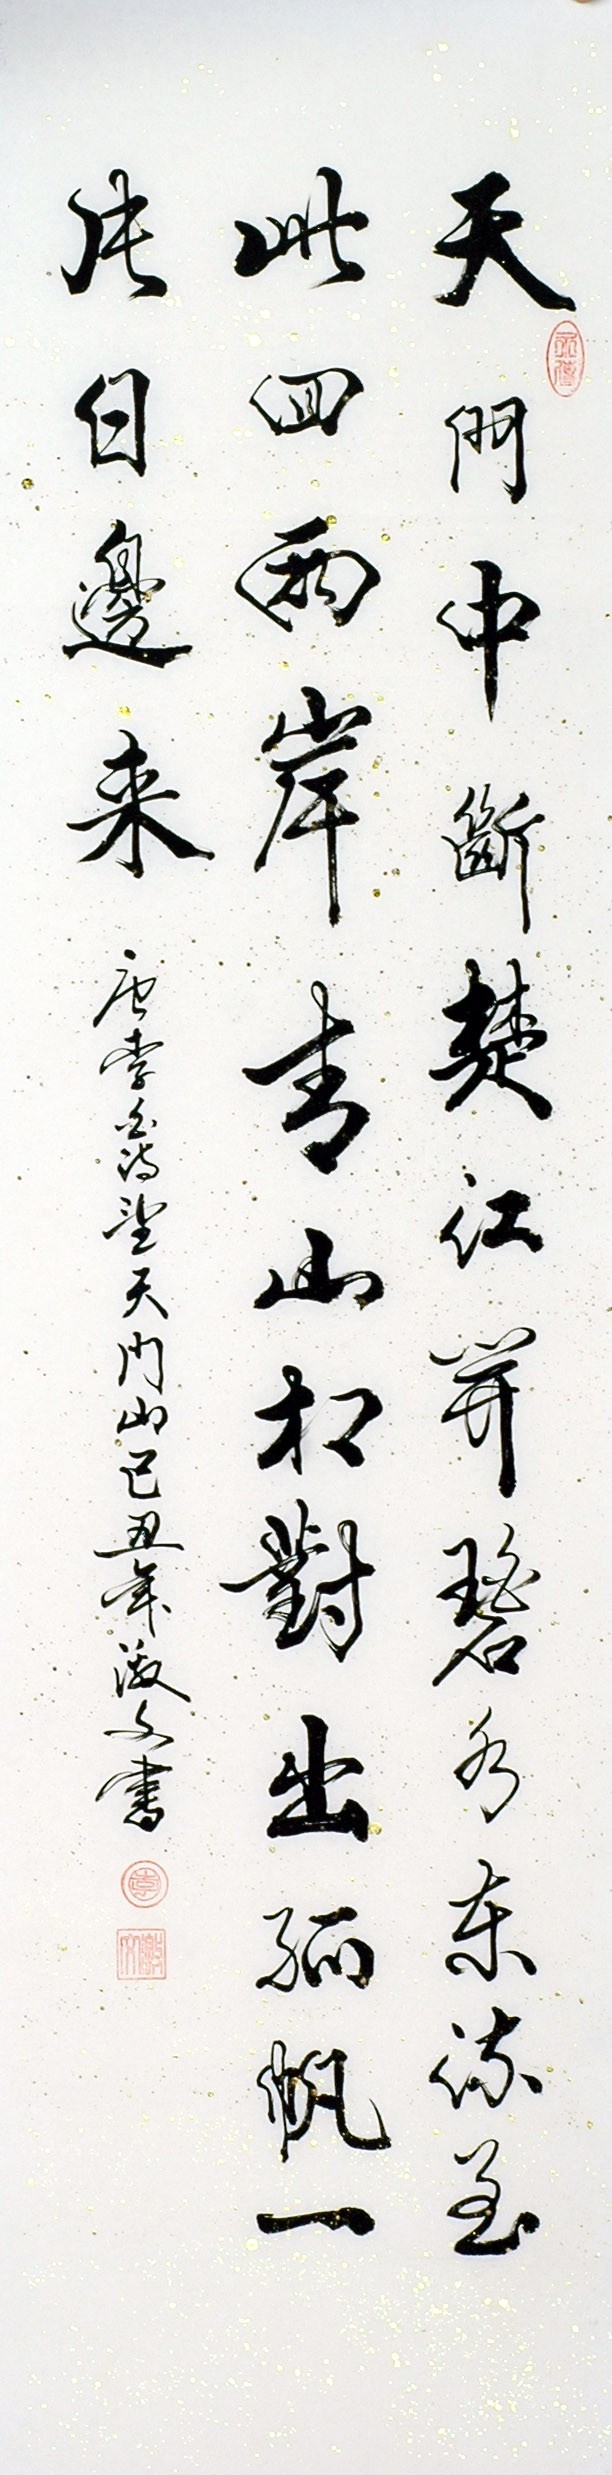 天門中斷楚江開碧水東流至
此回兩岸青山相對出孤帆一
片日邊来
唐李白詩望天门山己丑年激文書